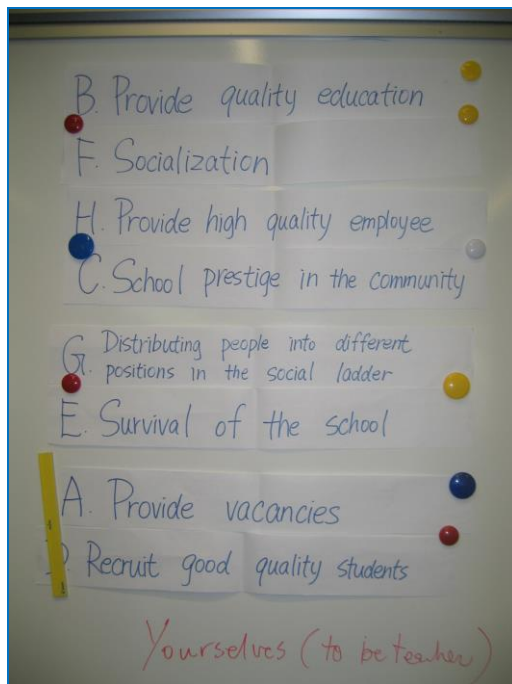 B. Provide quality education
F. Socialization
H. Provide high quality employee
C. School prestige in the community
G. Distributing people into different
positions in the social ladder
E. Survival of the school
A. Provide vacancies
Recruit good quality students
Yourselves (to be teacher)